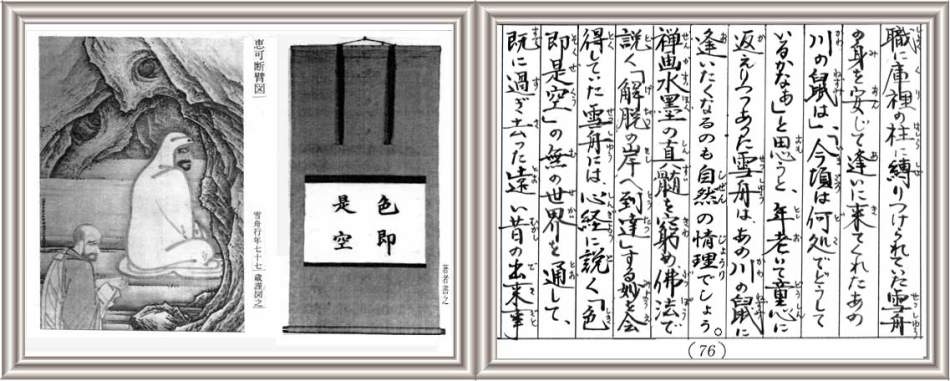 職に庫裡の柱に縛りつけられていた雪舟
の身を安じて逢いに来てくれたあの
川の鼠は」、「今頃は何処でどうして
いるかなあ」と思うと、年老いて童心に
返えりつつあった雪舟は、あの川の鼠に
逢いたくなるのも自然の情理でしょう。
禅画水墨の真髄を窮め佛法で
説く「解脱の岸へ到達」する妙を会
得していた雪舟には、心経に説く「色
即是空」の無の世界を通して、
既に過ぎ去った遠い昔の出来事
(76)
著者書之
色即
是空
恵可断臂図
雪舟行年七十七歳謹図之